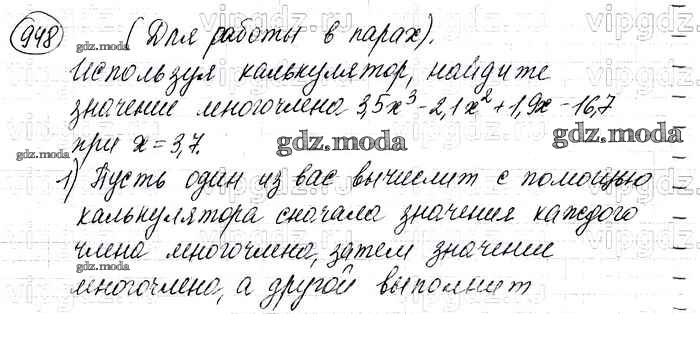 948 (Для работы в парах).
Используя калькулятор, найдите
значение многочлена 3,5x³-2,1x²+1,9x-16,7
при x=3,7.
1) Пусть один из вас вычислит с помощью
калькулятора сначала значение каждого
члена многочлена, затем значение
многочлена, а другой выполнит
gdz.moda
gdz.moda
gdz.moda
gdz.moda
gdz.moda
gdz.moda
vipgdz.ru